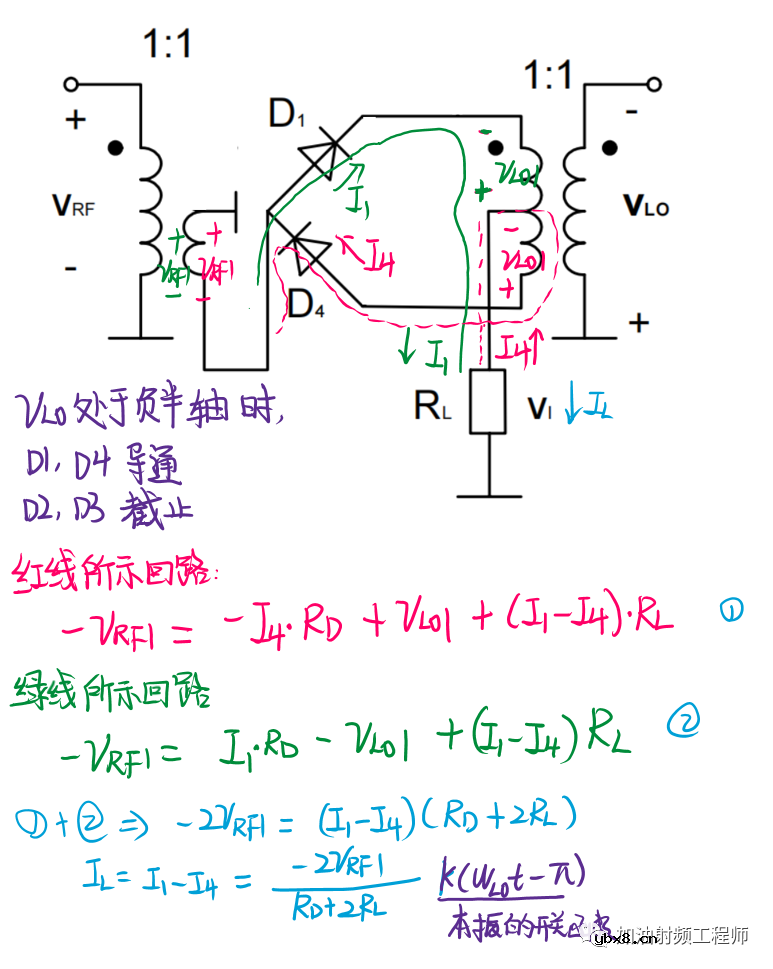 1:1
1:1
D1
+
-
+
-
VRF
-
+
+
VRF1
VRF1
-
-
I1
I4
D4
-
VLO1
+
-
VLO1
+
VLO
+
I1
I4
RL
VI
IL
VLO 处于负半轴时,
D1, D4 导通
D2, D3 截止
红线所示回路:
-VRF1 = -I4·RD + VLO1 + (I1-I4)·RL ①
绿线所示回路
-VRF1 = I1·RD - VLO1 + (I1-I4) RL ②
①+② ⇒ -2VRF1 = (I1-I4)(RD+2RL)
IL = I1-I4 = -2VRF1 / RD+2RL K(WLOt-π)
本振的开关函数
加油射频工程师
ybx8.cn